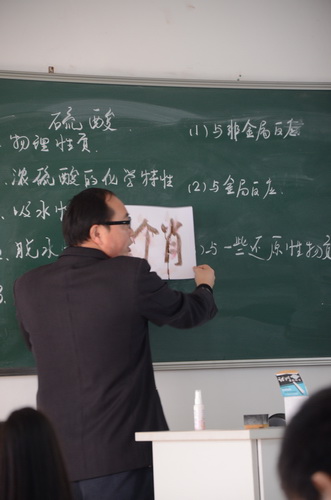 硫酸
物理性质.
浓硫酸的化学特性
吸水
脱水
(1)与非金属反应
(2)与金属反应.
)与一些还原性物质
个肖